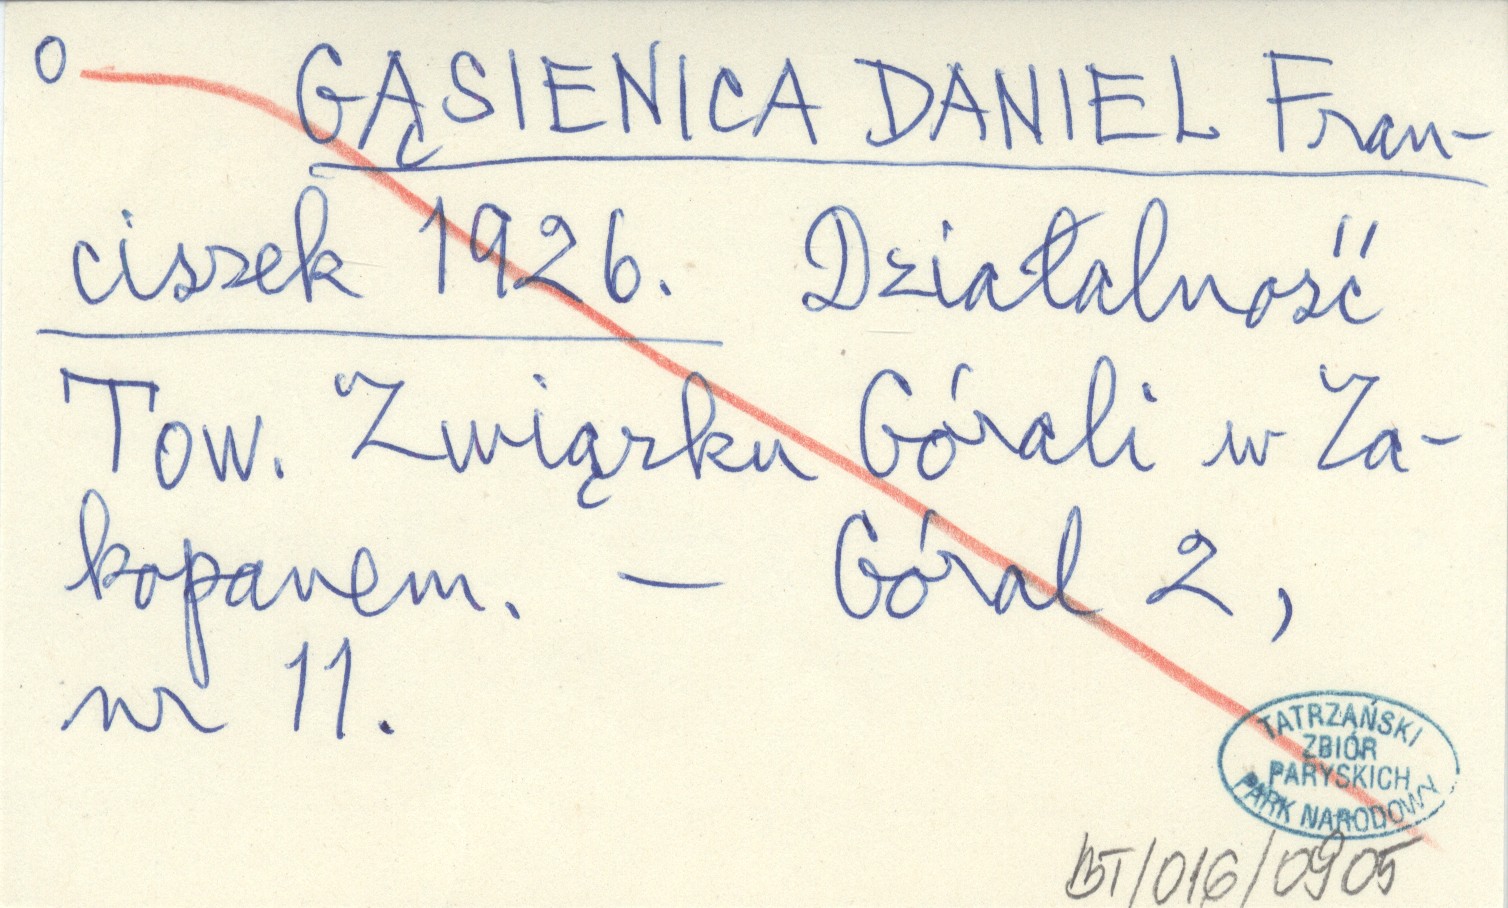 O GĄSIENICA DANIEL Fran-
ciszek 1926. Działalność
Tow. Związku Górali w Za-
kopanem. — Góral 2,
nr 11.
TATRZAŃSKI
ZBIÓR
PARYSKICH
PARK NARODOWY
BT/016/0905